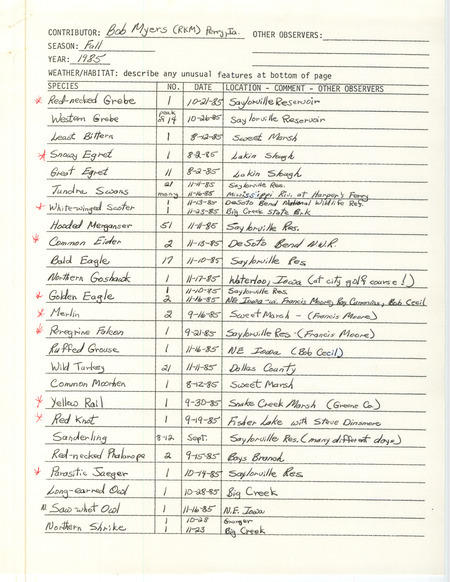 CONTRIBUTOR: Bob Myers (RKM) Perry, Ia. OTHER OBSERVERS:
SEASON: Fall
YEAR: 1985
WEATHER/HABITAT: describe any unusual features at bottom of page
SPECIES NO. DATE LOCATION - COMMENT - OTHER OBSERVERS
* Red-necked Grebe 1 10-21-85 Saylorville Reservoir
Western Grebe peak of 14 10-26-85 Saylorville Reservoir
Least Bittern 1 8-12-85 Sweet Marsh
* Snowy Egret 1 8-2-85 Lakin Slough
Great Egret 11 8-2-85 Lakin Slough
Tundra Swans 21 11-11-85 Saylorville Res.
many 11-16-85 Mississippi Riv. at Harper's Ferry
* White-winged Scoter 1 11-13-85 DeSoto Bend National Wildlife Ref.
1 11-25-85 Big Creek State Park
Hooded Merganser 51 11-11-85 Saylorville Res.
* Common Eider 2 11-13-85 DeSoto Bend N.W.R.
Bald Eagle 17 11-10-85 Saylorville Res
Northern Goshawk 1 11-17-85 Waterloo, Iowa (at city golf course!)
* Golden Eagle 1 11-10-85 Saylorville Res.
2 11-16-85 NE Iowa - w. Francis Moore, Ray Cummins, Bob Cecil
* Merlin 2 9-16-85 Sweet Marsh - (Francis Moore)
* Peregrine Falcon 1 9-21-85 Saylorville Res - (Francis Moore)
Ruffed Grouse 1 11-16-85 NE Iowa (Bob Cecil)
Wild Turkey 21 11-11-85 Dallas County
Common Moorhen 1 8-12-85 Sweet Marsh
* Yellow Rail 1 9-30-85 Snake Creek Marsh (Greene Co.)
* Red Knot 1 9-19-85 Fisher Lake with Steve Dinsmore
Sanderling 8-12 Sept. Saylorville Res. (many different days)
Red-necked Phalarope 2 9-15-85 Bays Branch
* Parasitic Jaeger 1 10-14-85 Saylorville Res
Long-earred Owl 1 10-28-85 Big Creek
N. Saw-whet Owl 1 11-16-85 N.E. Iowa
Northern Shrike 1 10-28 Granger
1 11-23 Big Creek